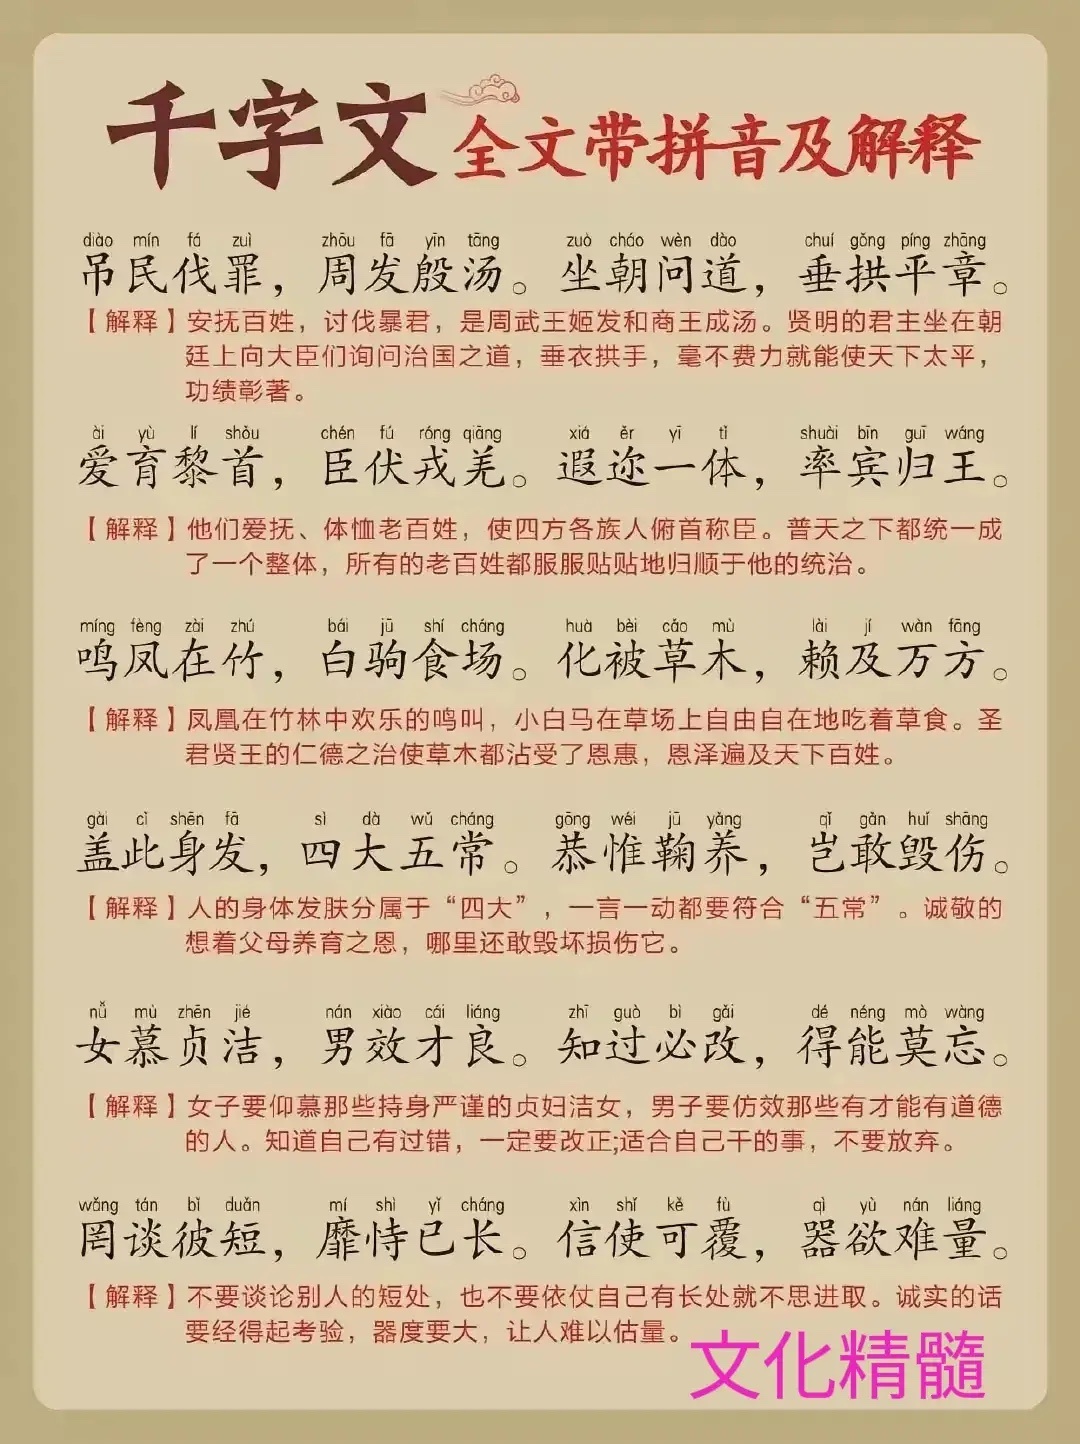 千字文 全文带拼音及解释
diào mín fá zuì zhōu fā yīn tāng zuò cháo wèn dào chuí gǒng píng zhāng
吊民伐罪，周发殷汤。坐朝问道，垂拱平章。
【解释】安抚百姓，讨伐暴君，是周武王姬发和商王成汤。贤明的君主坐在朝
廷上向大臣们询问治国之道，垂衣拱手，毫不费力就能使天下太平，
功绩彰著。
ài yù lí shǒu chén fú róng qiāng xiá ěr yī tǐ shuài bīn guī wáng
爱育黎首，臣伏戎羌。遐迩一体，率宾归王。
【解释】他们爱抚、体恤老百姓，使四方各族人俯首称臣。普天之下都统一成
了一个整体，所有的老百姓都服服贴贴地归顺于他的统治。
míng fèng zài zhú bái jū shí cháng huà bèi cǎo mù lài jí wàn fāng
鸣凤在竹，白驹食场。化被草木，赖及万方。
【解释】凤凰在竹林中欢乐的鸣叫，小白马在草场上自由自在地吃着草食。圣
君贤王的仁德之治使草木都沾受了恩惠，恩泽遍及天下百姓。
gài cǐ shēn fā sì dà wǔ cháng gōng wéi jū yǎng qǐ gǎn huǐ shāng
盖此身发，四大五常。恭惟鞠养，岂敢毁伤。
【解释】人的身体发肤分属于“四大”，一言一动都要符合“五常”。诚敬的
想着父母养育之恩，哪里还敢毁坏损伤它。
nǚ mù zhēn jié nán xiào cái liáng zhī guò bì gǎi dé néng mò wàng
女慕贞洁，男效才良。知过必改，得能莫忘。
【解释】女子要仰慕那些持身严谨的贞妇洁女，男子要仿效那些有才能有道德
的人。知道自己有过错，一定要改正;适合自己干的事，不要放弃。
wǎng tán bǐ duǎn mí shì yǐ cháng xìn shǐ kě fù qì yù nán liáng
罔谈彼短，靡恃已长。信使可覆，器欲难量。
【解释】不要谈论别人的短处，也不要依仗自己有长处就不思进取。诚实的话
要经得起考验，器度要大，让人难以估量。
文化精髓